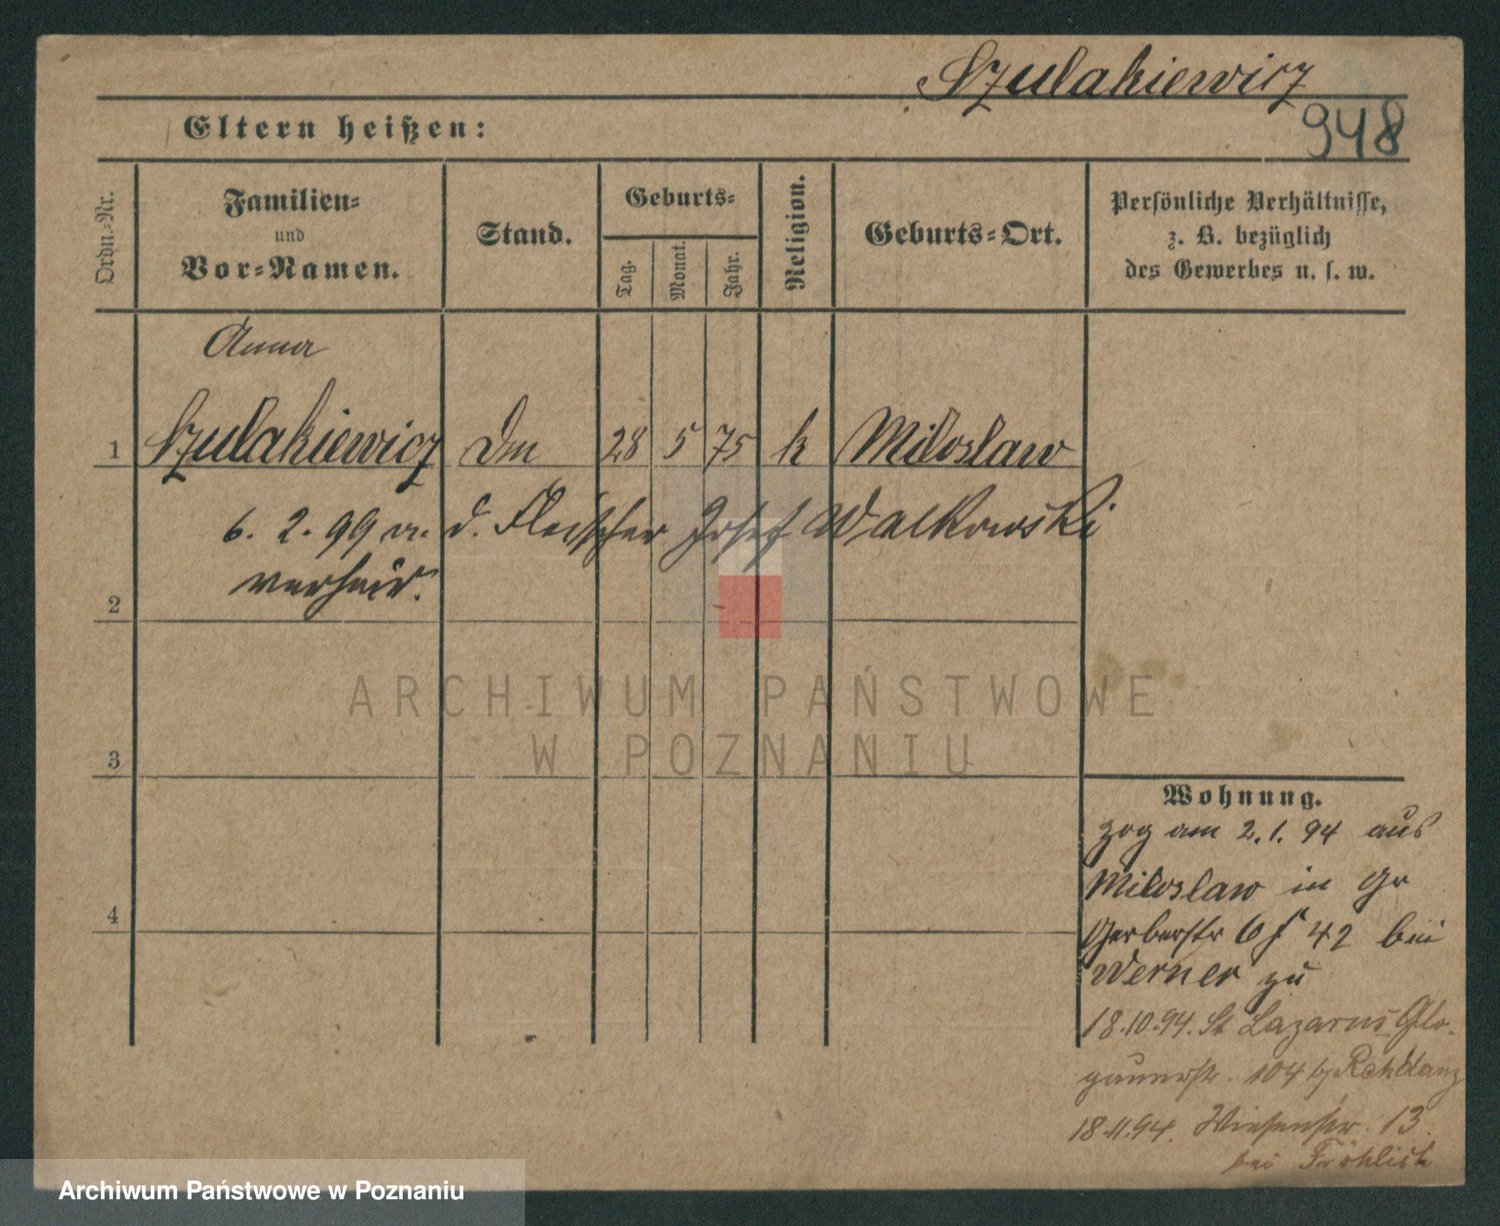 Szulakiewicz
948
Eltern heißen:
Ordn.-Nr.
Familien-
und
Vor-Namen.
Stand.
Geburts-
Tag.
Monat.
Jahr.
Religion.
Geburts-Ort.
Persönliche Verhältnisse,
z. B. bezüglich
des Gewerbes u. s. w.
Anna
1 Szulakiewicz Dm 28 5 75 k Miloslaw
6. 2. 99 m. d. Fleischer Josef Walkowski
verheir.
2
3
4
Wohnung.
zog am 2.1.94 aus
Miloslaw in Gr
Gerberstr 42 bei
Werner zu
18.10.94. St Lazarus Glo-
gauerstr. 104 b/ Rehdanz
18.11.94. Wiesenstr. 13.
bei Fröhlich
ARCHIWUM PAŃSTWOWE
W POZNANIU
Archiwum Państwowe w Poznaniu